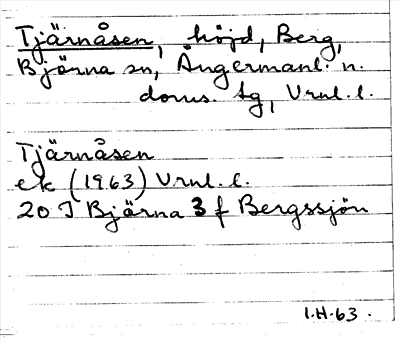 Tjärnåsen, höjd, Berg,
Björna sn, Ångermanl:s n.
doms. tg, Vrnl. l.
Tjärnåsen
ek (1963) Vrnl. l.
20 I Björna 3 f Bergssjön
I.H-63.